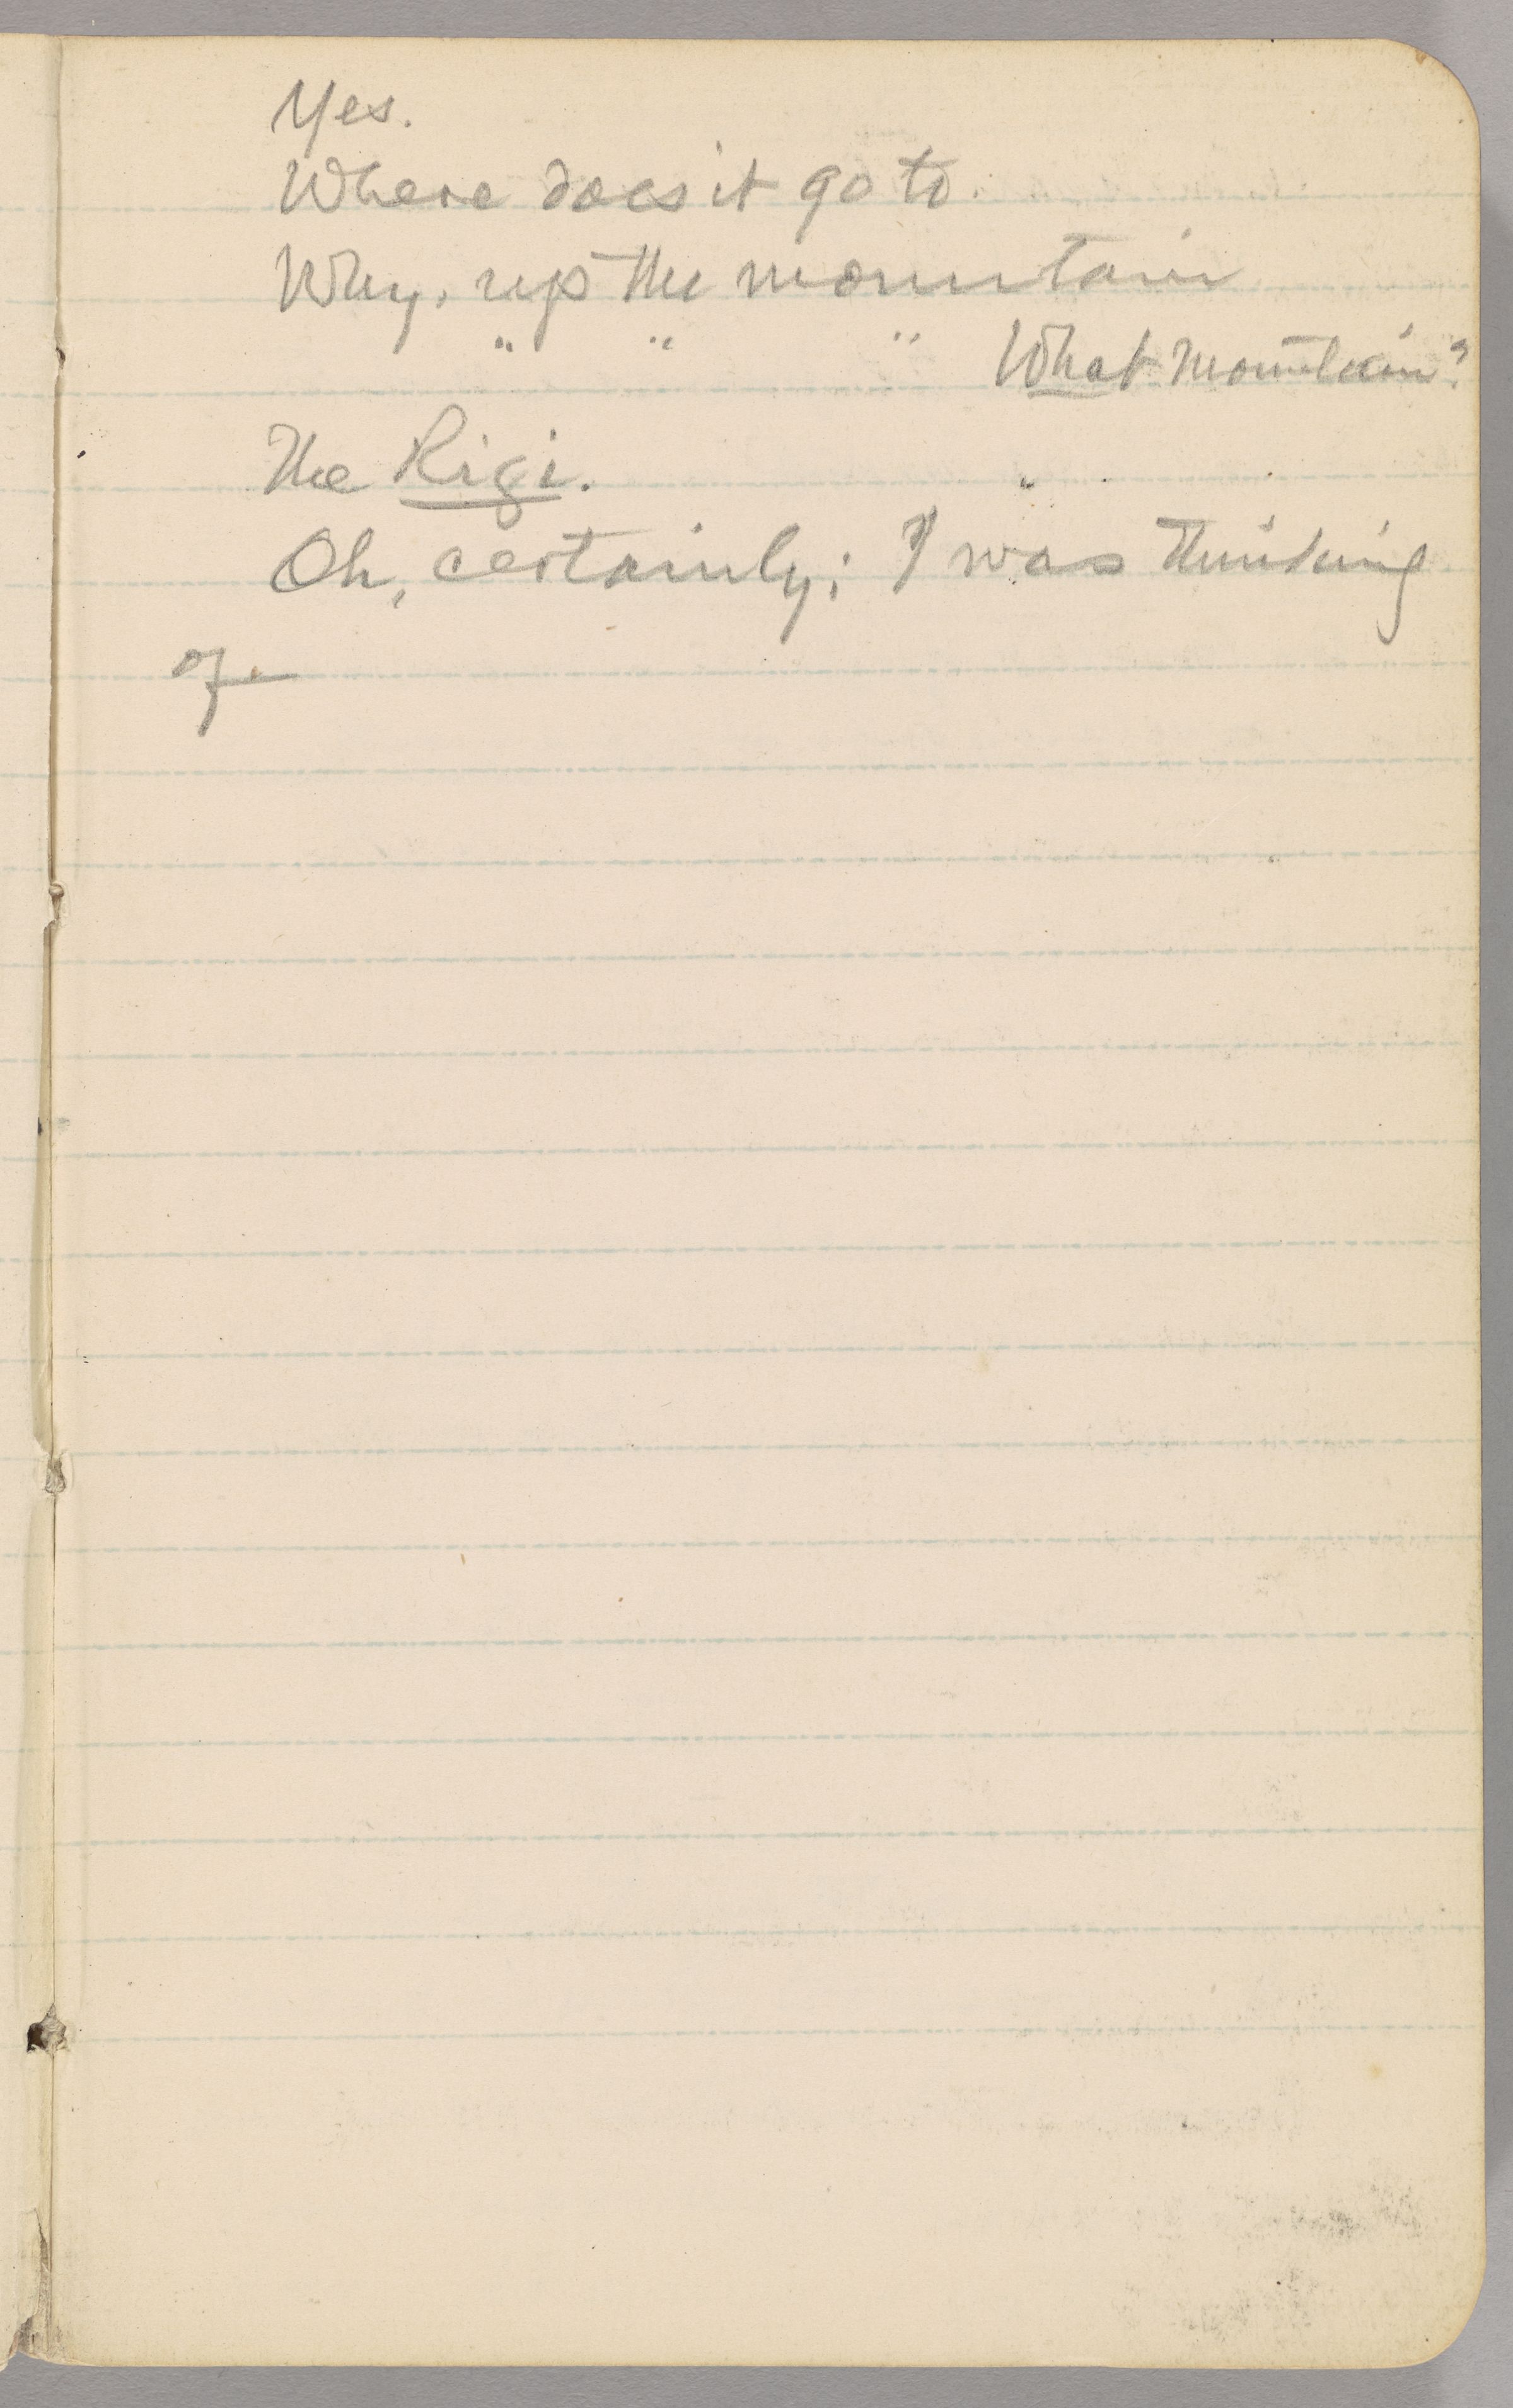 Yes.
Where does it go to.
Why, up the mountain
" " " What mountain?
The Rigi.
Oh, certainly; I was thinking
of—